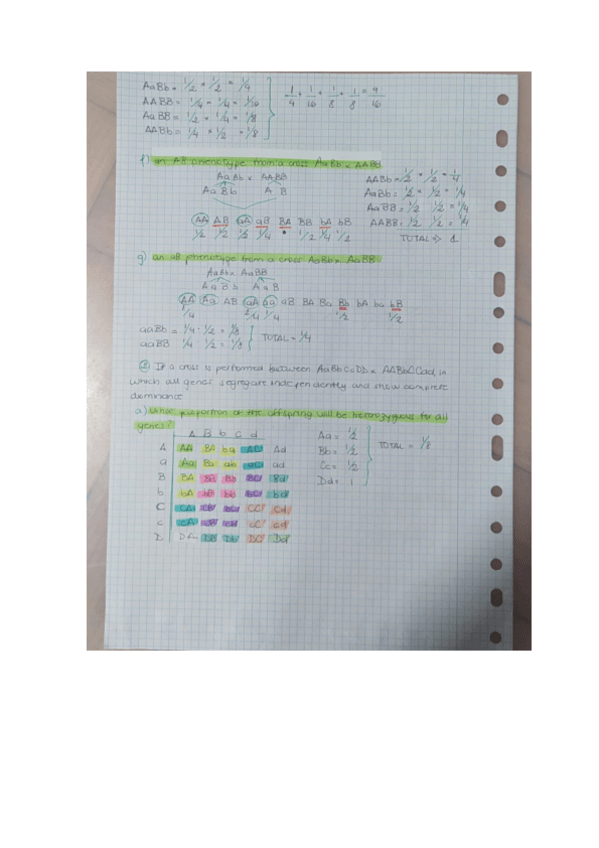 AaBb = 1/2 · 1/2 = 1/4
AABB = 1/4 · 1/4 = 1/16
AaBB = 1/2 · 1/4 = 1/8
AABb = 1/4 · 1/2 = 1/8
1/4 + 1/16 + 1/8 + 1/8 = 9/16
f) an AB phenotype from a cross AaBb x AABB
AaBb x AABB
AaBb A B
AA AB aA aB BA BB bA bB
1/2 1/2 1/2 1/4 1/2 1/4 1/2
AABb = 1/2 · 1/2 = 1/4
AaBb = 1/2 · 1/2 = 1/4
AaBB = 1/2 1/2 = 1/4
AABB = 1/2 1/2 = 1/4
TOTAL => 1
g) an aB phenotype from a cross AaBb x AaBB
AaBb x AaBB
A a B b A a B
AA Aa AB aA aa aB BA Ba BB bA ba bB
1/4 1/4 1/2 1/2
aaBb = 1/4 · 1/2 = 1/8
aaBB 1/4 · 1/2 = 1/8
TOTAL = 1/4
② If a cross is performed between AaBbCcDD x AABbCCdd, in
which all genes segregate independently and show complete
dominance
a) What proportion of the offspring will be heterozygous for all
genes?
A B b C d
A AA BA bA AC Ad
a Aa Ba ab aC ad
B BA BB Bb BC Bd
b bA bB bb bC bd
C CA CB bC CC Cd
c cA cB cB cC cd
D DA DB Db DC Dd
Aa = 1/2
Bb = 1/2
Cc = 1/2
Dd = 1
TOTAL = 1/8